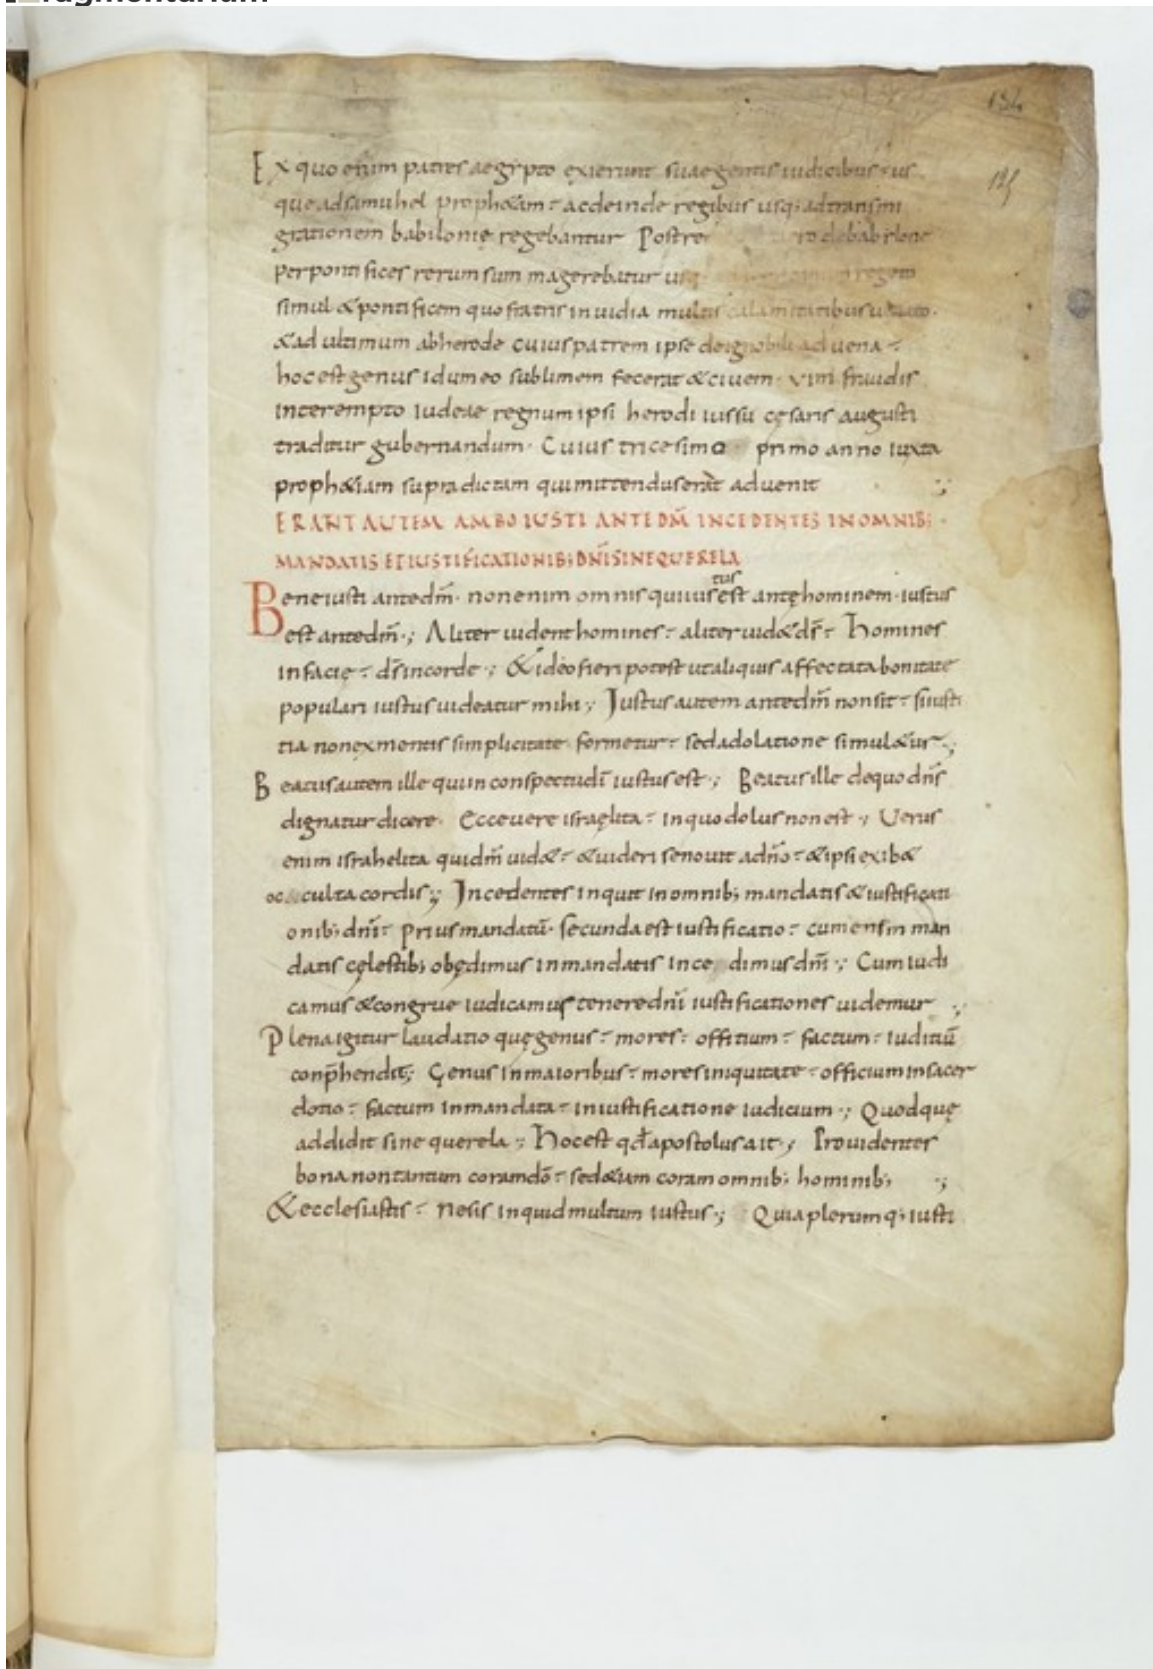 ragmentarium
134
125
Ex quo enim patres aegypto exierunt suaegentis iudicibus us
que adsamuhel proph&am accdeinde regibus usq; adtransmi
grationem babilonię regebantur Post re debabilone
perpontifices rerum sum magerebatur usq regem
simul & pontificem quo fratris inuidia multis calamitatibus
& ad ultimum abherode cuius patrem ipse de ignobili aduena
hoc est genus idumeo sublimem fecerat & ciuem. vim fraudis
interempto iudeae regnum ipsi herodi iussu cęsaris augusti
traditur gubernandum. Cuius tricesimo primo anno iuxta
proph&iam supradictam qui mittenduserat aduenit ;
ERANT AUTEM AMBO IUSTI ANTE DM̄ INCEDENTES IN OMNIB;
MANDATIS ET IUSTIFICATIONIB; DNĪ SINE QUERELA
Bene iusti antedm̄. non enim omnis qui iustus est antę hominem. iustus
est antedm̄.; Aliter uident homines aliter uid& ds̄ Homines
in facię ds̄ incorde .; & ideo fieri potest utaliquis affectata bonitate
populari iustus uideatur mihi.; Iustus autem antedm̄ non sit si iusti
tia non ex mentis simplicitate formetur sed adolatione simul&ur.;
Beatus autem ille qui in conspectu dī iustus est.; Beatus ille dequo dn̄s
dignatur dicere. Ecce uere israęlita in quo dolus non est.; Uerus
enim israhelita qui dm̄ uid& & uideri se nouit adn̄o & ipsi exib&
occulta cordis.; Incedentes inquit in omnib; mandatis & iustificati
onib; dnī Prius mandatū. secunda est iustificatio cum ensin man
datis cęlestib; obędimus in mandatis incedimus dnī.; Cum iudi
camus & congrue iudicamus tenere dnī iustificationes uidemur .;
Plena igitur laudatio quę genus mores offitium factum iuditiū
conp̄hendit; Genus in maioribus mores iniquitate officium in sacer
dotio factum in mandata in iustificatione iudicium.; Quodquę
addidit sine querela.; Hoc est qd̄ apostolus ait.; Prouidentes
bona non tantum coram dō sed&iam coram omnib; hominib; .;
& ecclesiastis Ne sis inquid multum iustus.; Quia plerumq; iusti